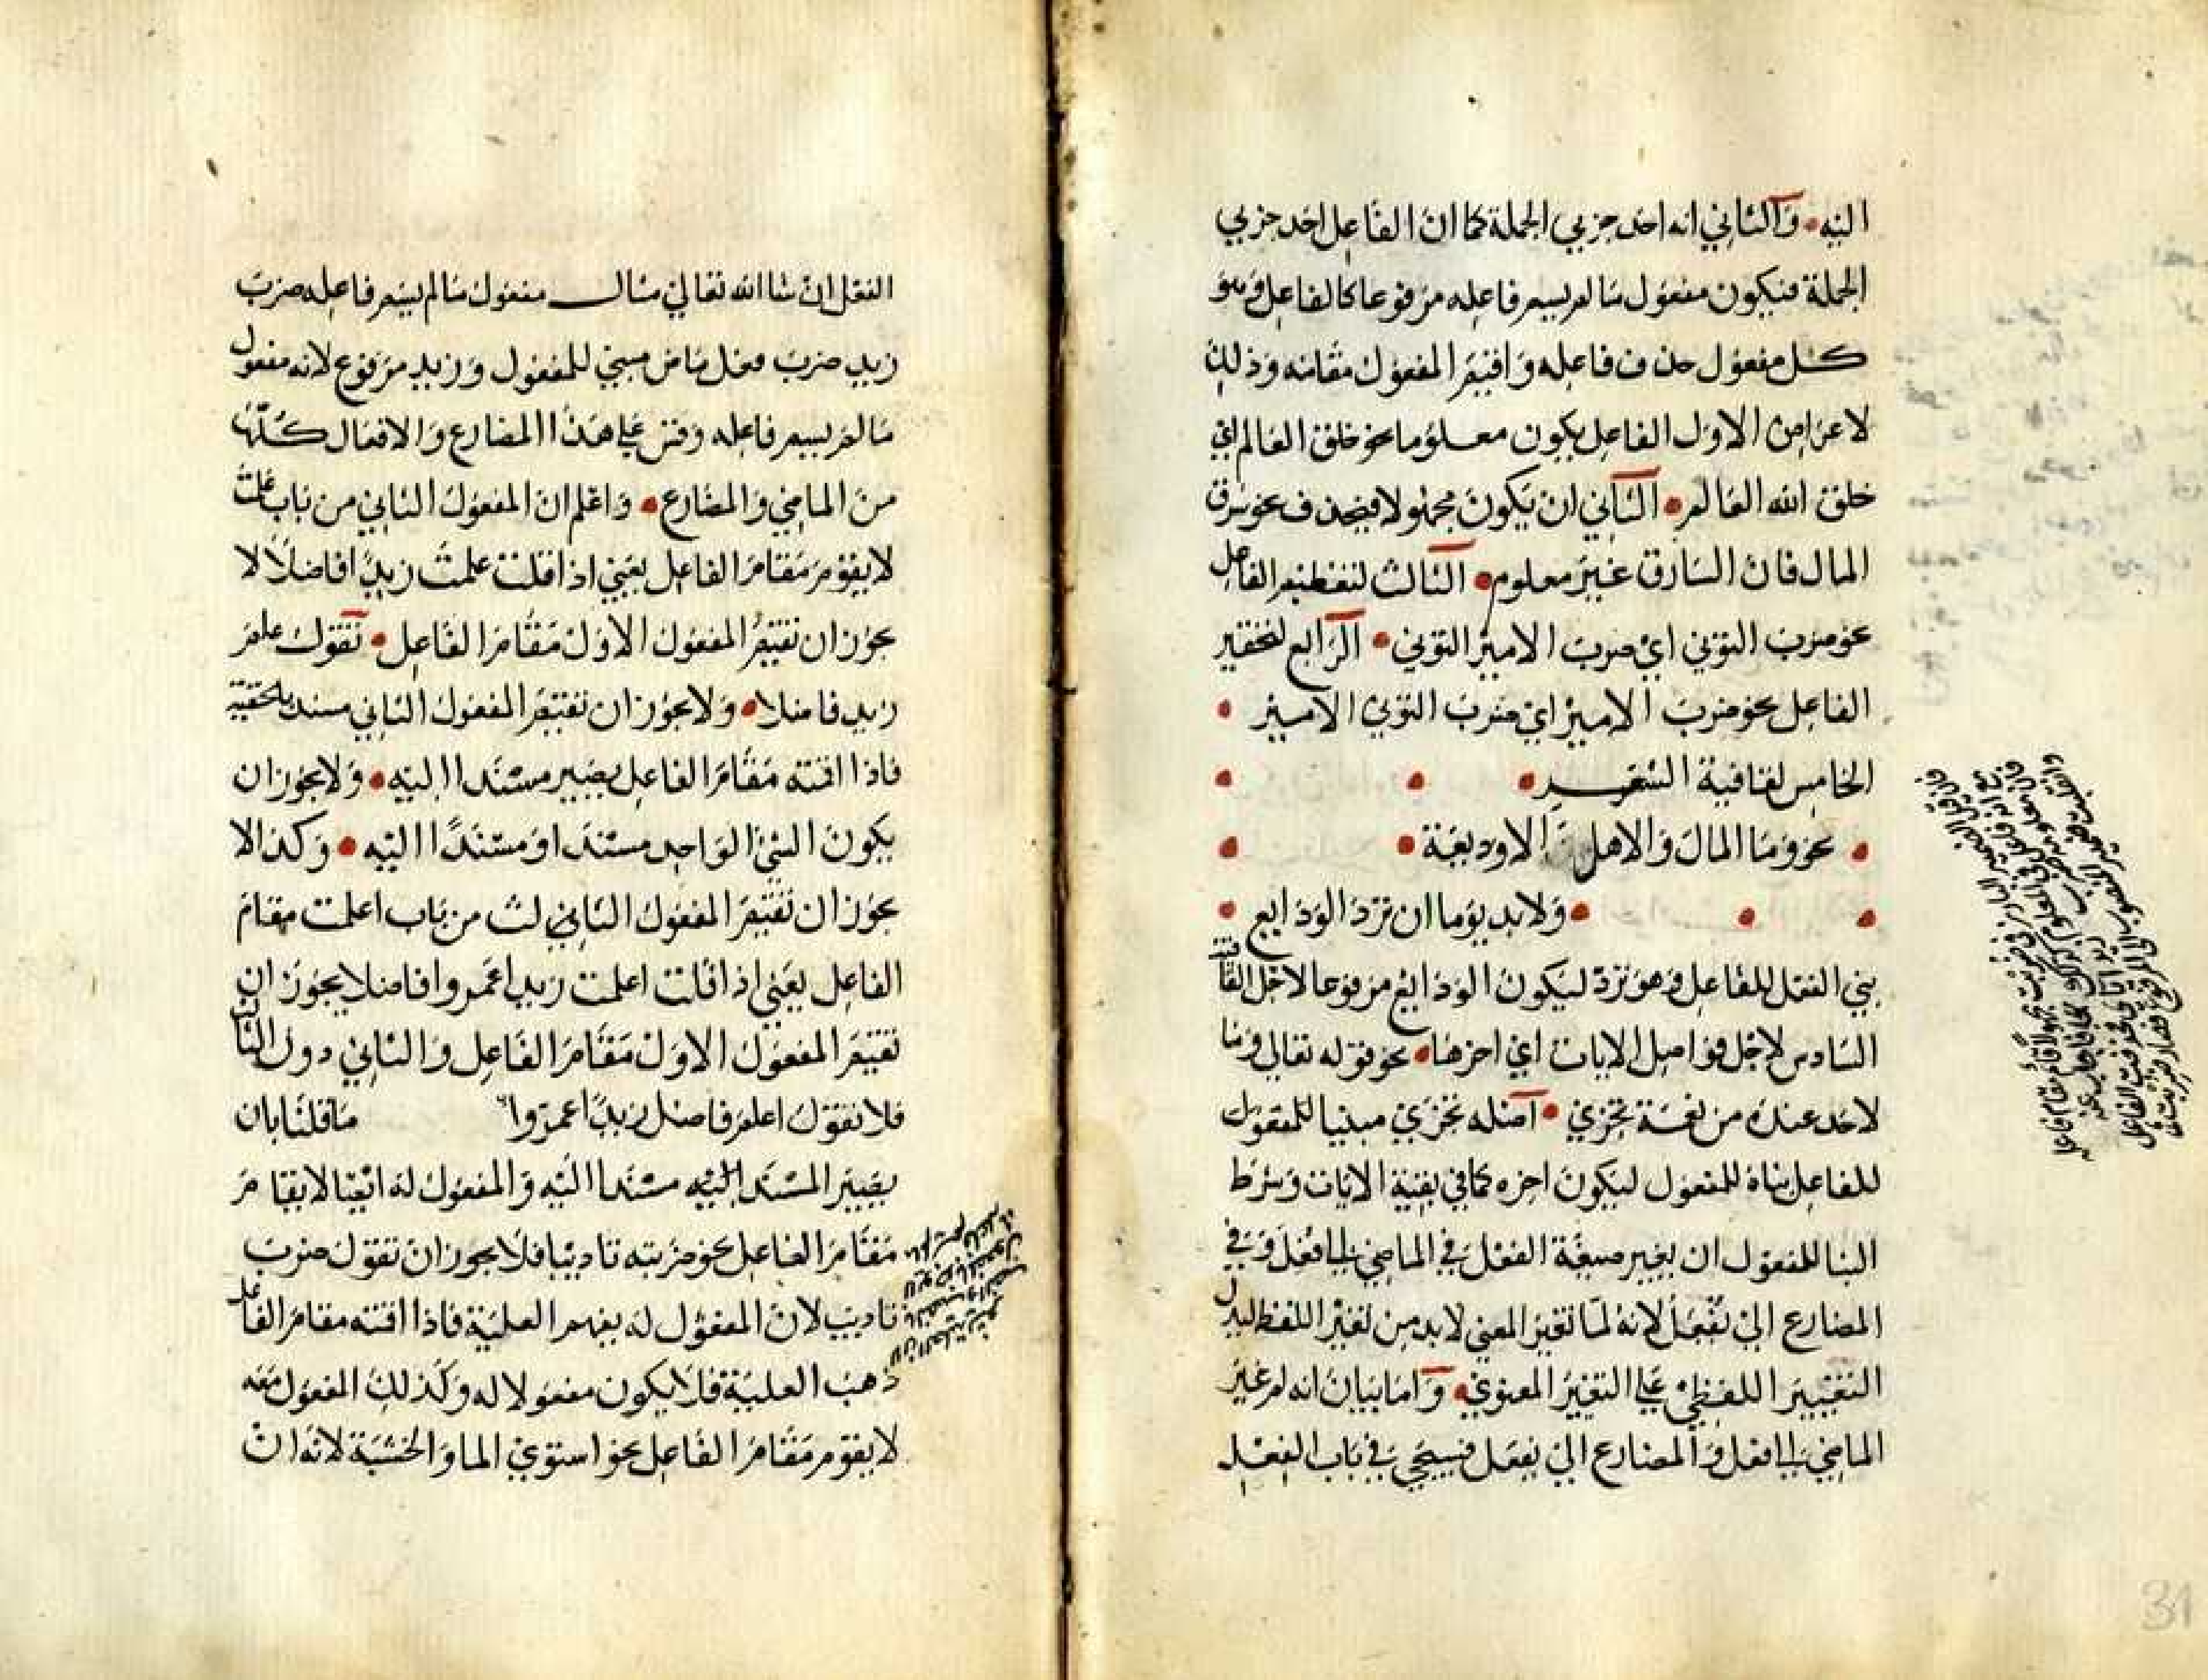 اليه والثاني انه احد جزيي الجملة كما ان الفاعل احد جزيي
الجملة فيكون مفعول ما لم يسم فاعله مرفوعا كالفاعل وهو
كل مفعول حذف فاعله واقيم المفعول مقامه وذلك
لاغراض الاول الفاعل يكون معلوما نحو خلق العالم اي
خلق الله العالم الثاني ان يكون مجهولا فيحذف نحو سرق
المال فان السارق غير معلوم الثالث لتعظيم الفاعل
نحو ضرب التوني اي ضرب الامير التوني الرابع لتحقير
الفاعل نحو ضرب الامير اي ضرب التوني الامير
الخامس لقافية الشعر
نحو وما المال والاهل الا وديعة
ولا بد يوما ان ترد الودايع
بني الفعل للفاعل وهو ترد ليكون الودايع مرفوعا لاجل القافية
السادس لاجل فواصل الايات اي اخرها نحو قوله تعالي وما
لاحد عنده من نعمة تجزي اصله نجزي مبنيا للمفعول
للفاعل بناه للمفعول ليكون اخره كما في بقية الايات وشرط
البنا للمفعول ان يغير صيغة الفعل في الماضي الي فعل وفي
المضارع الي يفعل لانه لما تغير المعني لابد من تغير اللفظ ليدل
التغيير اللفظي علي التغيير المعنوي واما بيان انه لم غير
الماضي الي فعل والمضارع الي يفعل فسيجي في باب الفعل
الفعل ان شا الله تعالي مثال مفعول ما لم يسم فاعله ضرب
زيد ضرب فعل ماض مبني للمفعول وزيد مرفوع لانه مفعول
ما لم يسم فاعله وقس علي هذا المضارع والافعال كلها
من الماضي والمضارع واعلم ان المفعول الثاني من باب علمت
لا يقوم مقام الفاعل يعني اذا قلت علمت زيدا فاضلا لا
يجوز ان تقيم المفعول الاول مقام الفاعل تقول علم
زيد فاضلا ولا يجوز ان تقيم المفعول الثاني مسند بالحقيقة
فاذا اقمته مقام الفاعل يصير مسندا اليه ولا يجوز ان
يكون الشئ الواحد مسندا ومسندا اليه وكذا لا
يجوز ان تقيم المفعول الثالث من باب اعلمت مقام
الفاعل يعني اذا قلت اعلمت زيدا عمروا فاضلا يجوز ان
تقيم المفعول الاول مقام الفاعل والثاني دون الثالث
فلا تقول اعلم فاضل زيدا عمروا ما قلنا بان
يصير المسند اليه مسندا اليه والمفعول له ايضا لا يقام
مقام الفاعل نحو ضربته تاديبا فلا يجوز ان تقول ضرب
تاديب لان المفعول له يفهم العلية فاذا اقمته مقام الفاعل
ذهب العلية فلا يكون مفعولا له وكذلك المفعول معه
لا يقوم مقام الفاعل نحو استوي الما والخشبة لانه ان
31